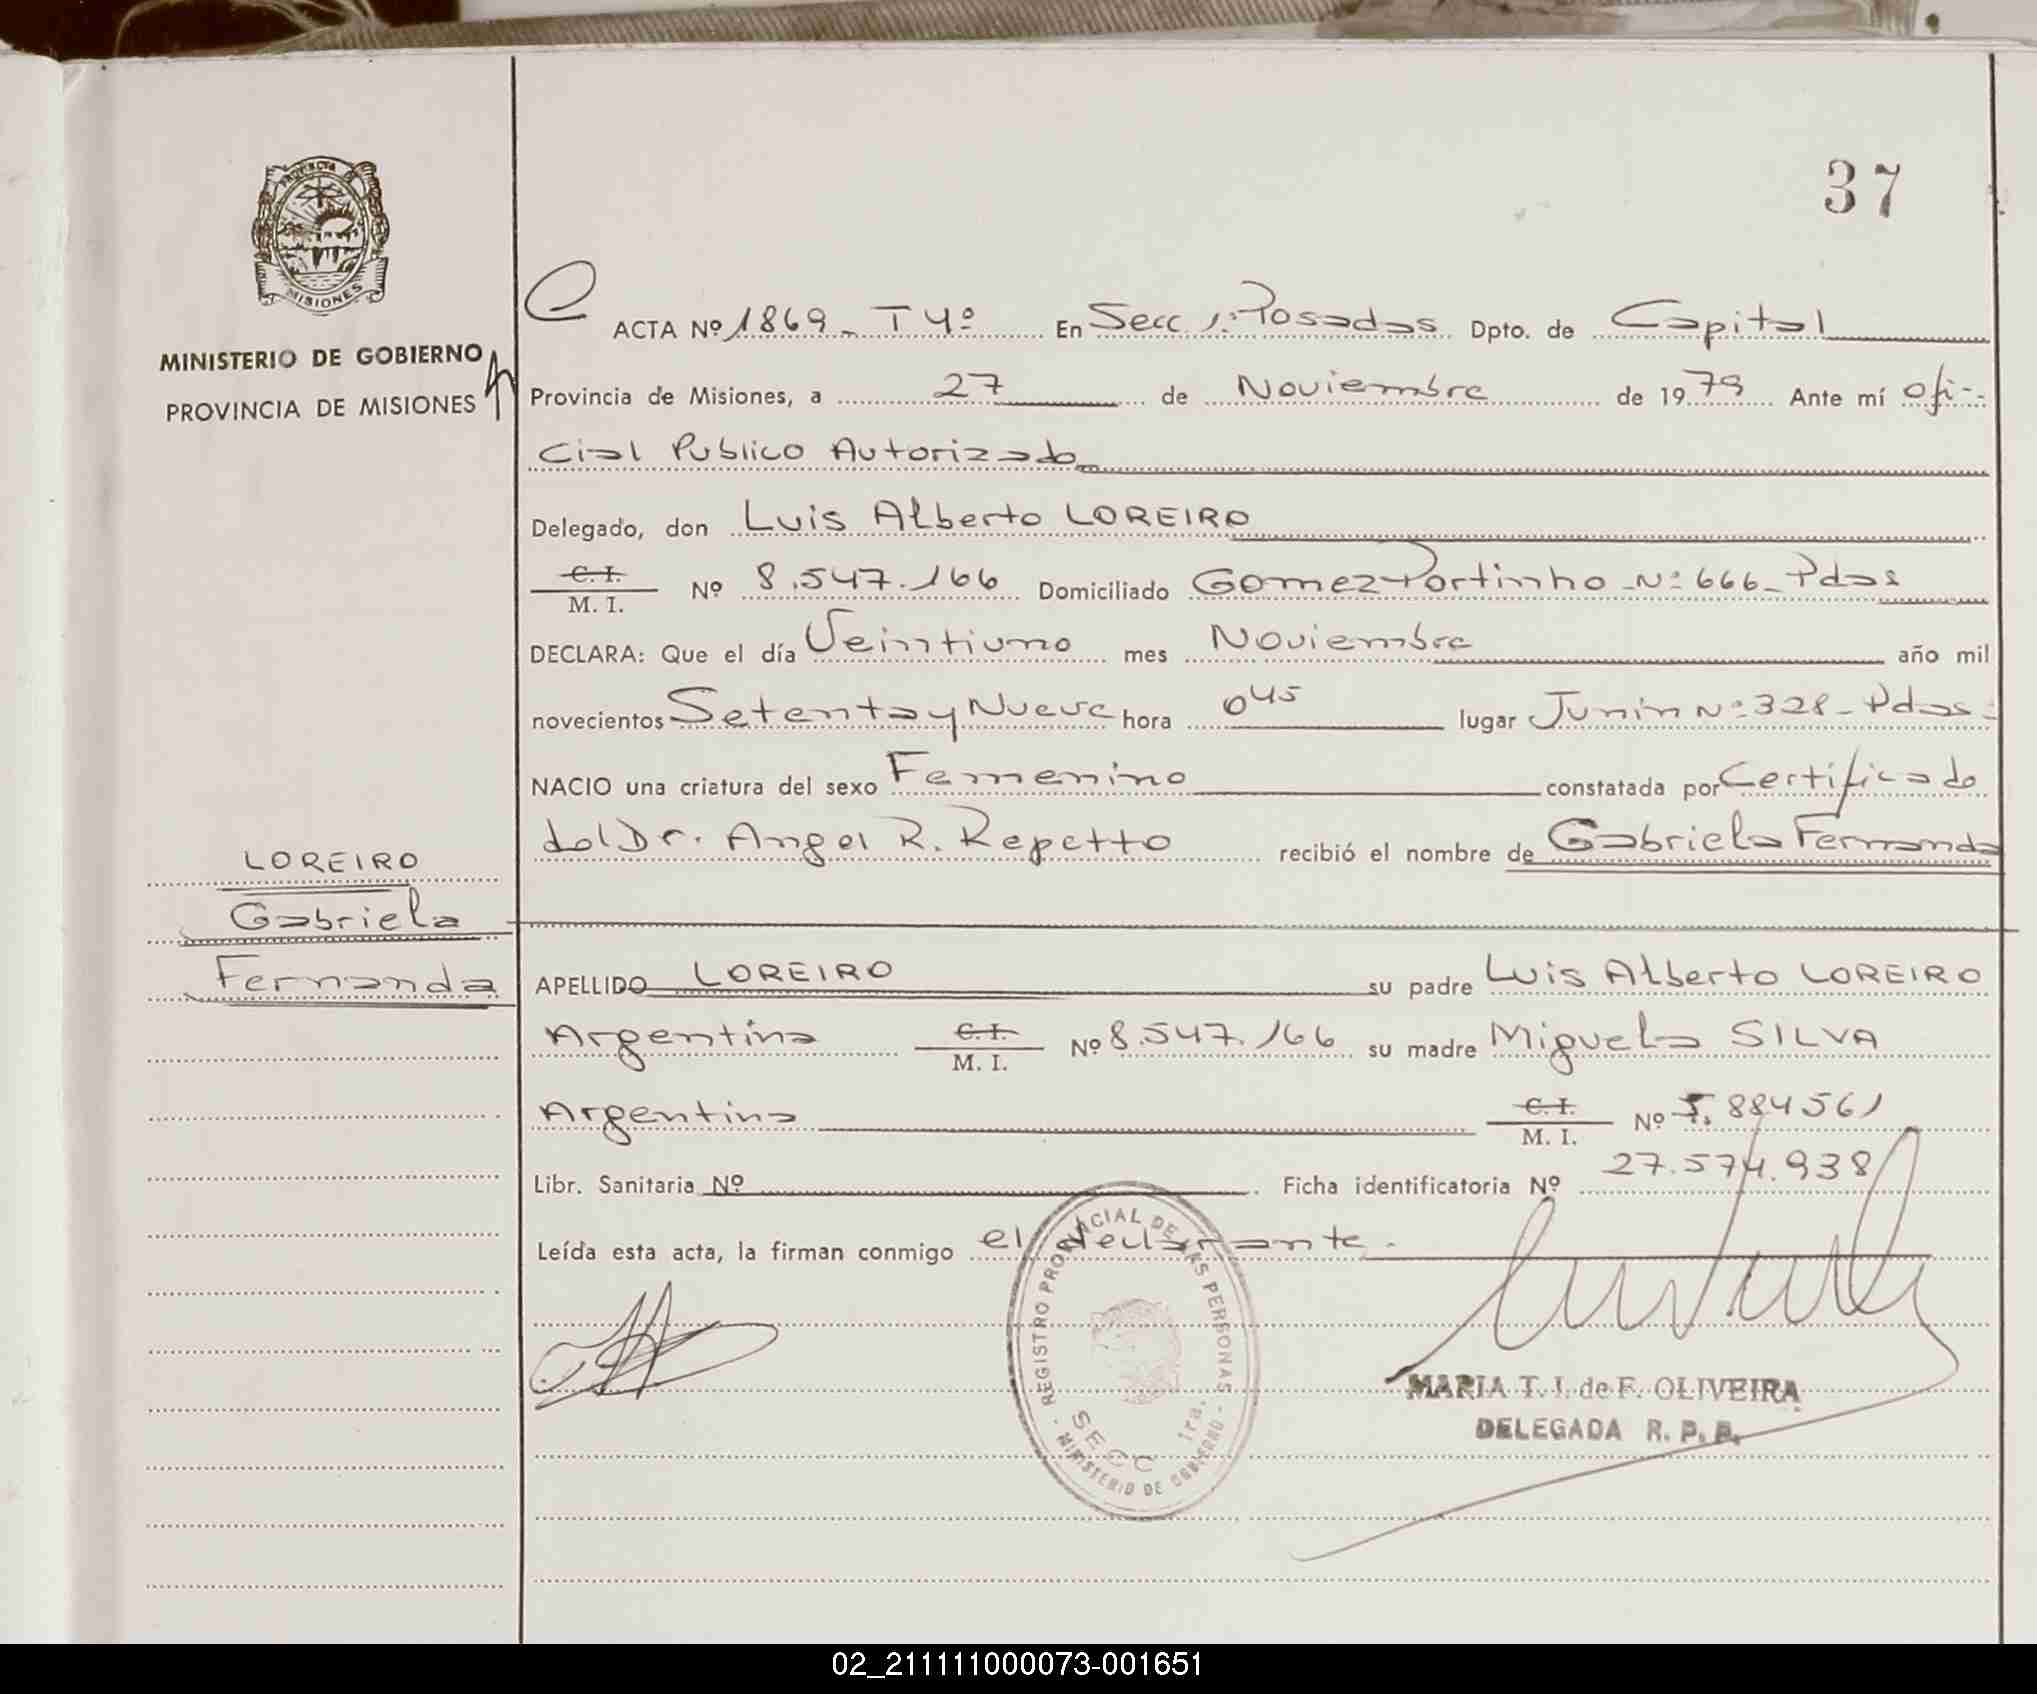 37
PROVINCIA DE
MISIONES
MINISTERIO DE GOBIERNO
PROVINCIA DE MISIONES
ACTA Nº 1869_ T 4º En Secc 1ª Posadas Dpto. de Capital
Provincia de Misiones, a 27 de Noviembre de 1979 Ante mí ofi-
cial Publico Autorizado
Delegado, don Luis Alberto LOREIRO
C. I. M. I. Nº 8.547.166 Domiciliado Gomez Portinho Nº 666_ Pdas
DECLARA: Que el día Veintiuno mes Noviembre año mil
novecientos Setenta y Nueve hora 0 45 lugar Junin Nº 328_ Pdas-
NACIO una criatura del sexo Femenino constatada por Certificado
del Dr. Angel R. Repetto recibió el nombre de Gabriela Fernanda
LOREIRO
Gabriela
Fernanda
APELLIDO LOREIRO su padre Luis Alberto LOREIRO
Argentina C. I. M. I. Nº 8.547.166 su madre Miguela SILVA
Argentina C. I. M. I. Nº 5.884561
Libr. Sanitaria Nº Ficha identificatoria Nº 27.574.938
Leída esta acta, la firman conmigo el declarante.
REGISTRO PROVINCIAL DE LAS PERSONAS
MINISTERIO DE GOBIERNO
SECC 1ra.
MARIA T. I. de F. OLIVEIRA
DELEGADA R. P. P.
02_211111000073-001651